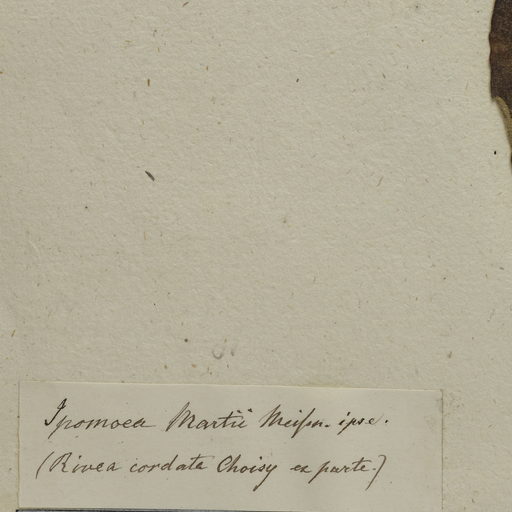 Ipomoea Martii Meisn. ipse.
(Rivea cordata Choisy ex parte.)